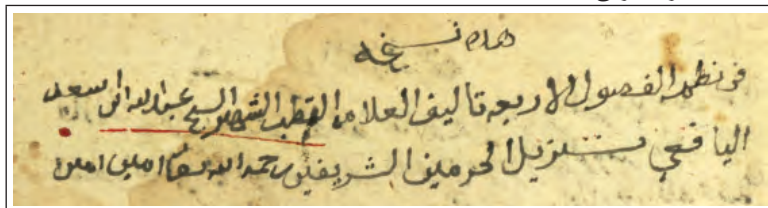 هذه نسخة
في نظم الفصول الاربعه تاليف العلامه القطب الشيخ عبد الله ابن اسعد
اليافعي نزيل الحرمين الشريفين رحمه الله تعالى امين امين